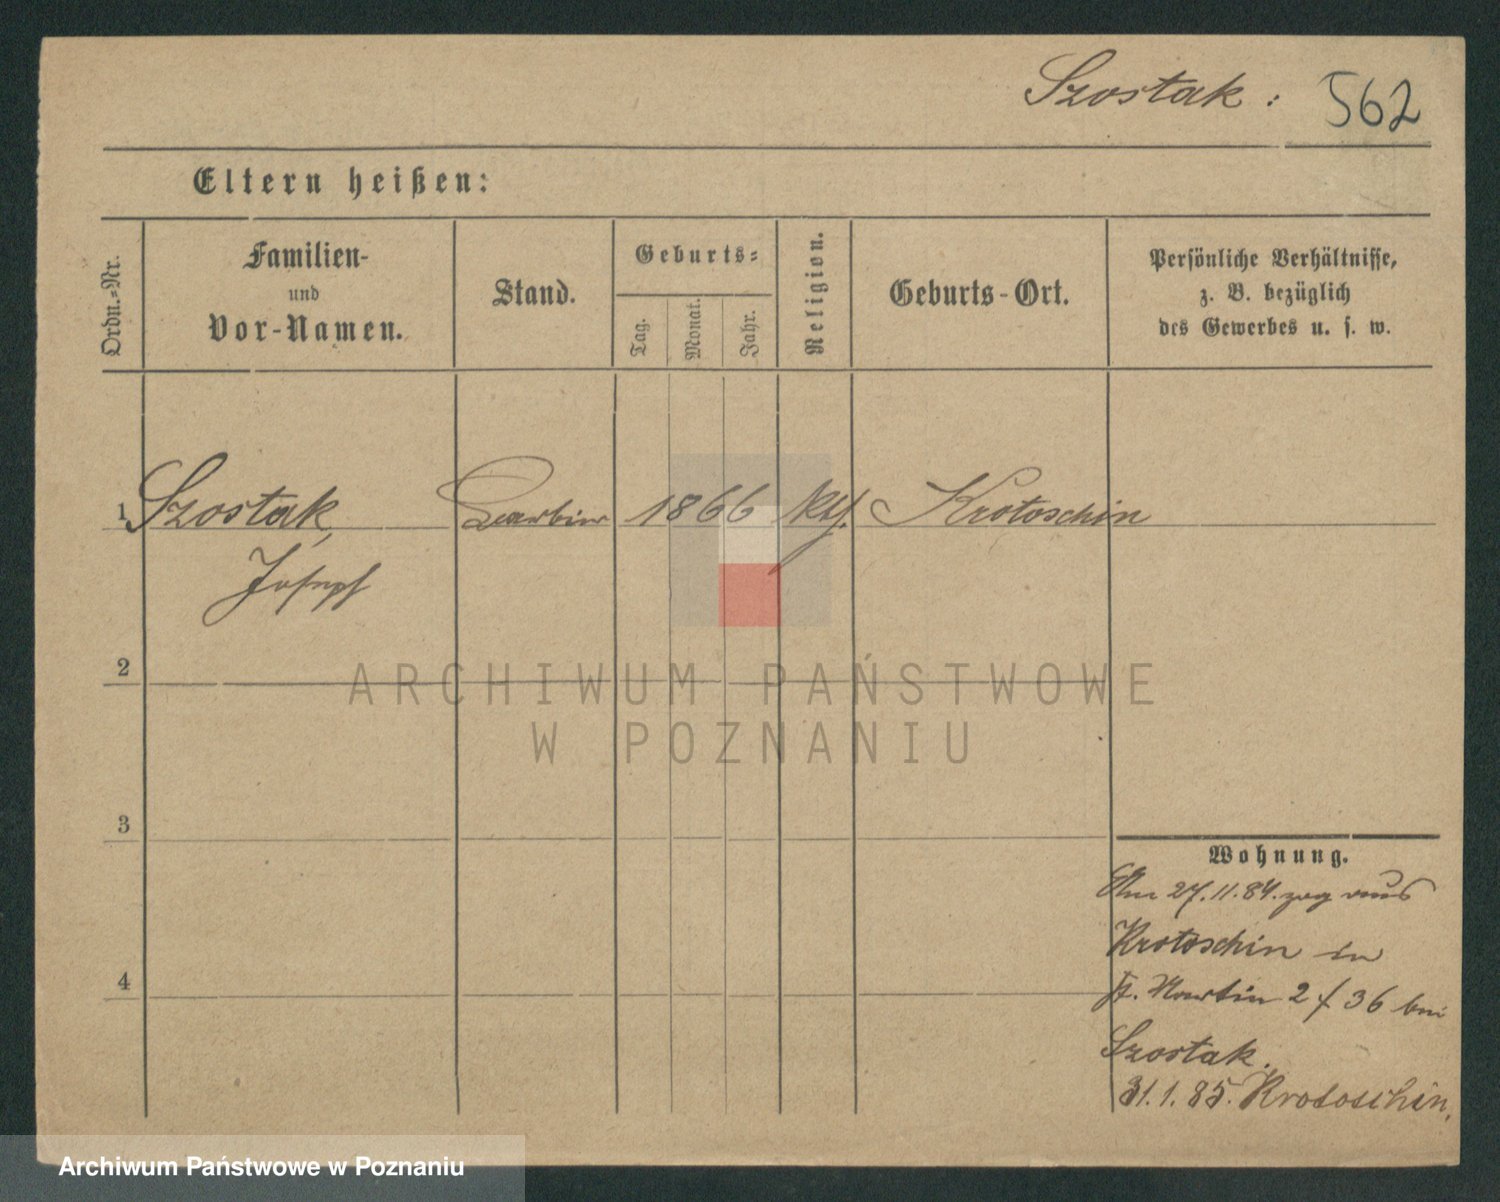 Szostak : 562
Eltern heißen:
Ordn.-Nr.
Familien-
und
Vor-Namen.
Stand.
Geburts-
Tag.
Monat.
Jahr.
Religion.
Geburts-Ort.
Persönliche Verhältnisse,
z. B. bezüglich
des Gewerbes u. s. w.
1 Szostak, Barbier 1866 kth. Krotoschin
Joseph
2
ARCHIWUM PAŃSTWOWE
W POZNANIU
3
Wohnung.
Am 27.11.84. zog aus
Krotoschin in
St. Martin 2 / 36 bei
4
Szostak.
31.1.85. Krotoschin.
Archiwum Państwowe w Poznaniu